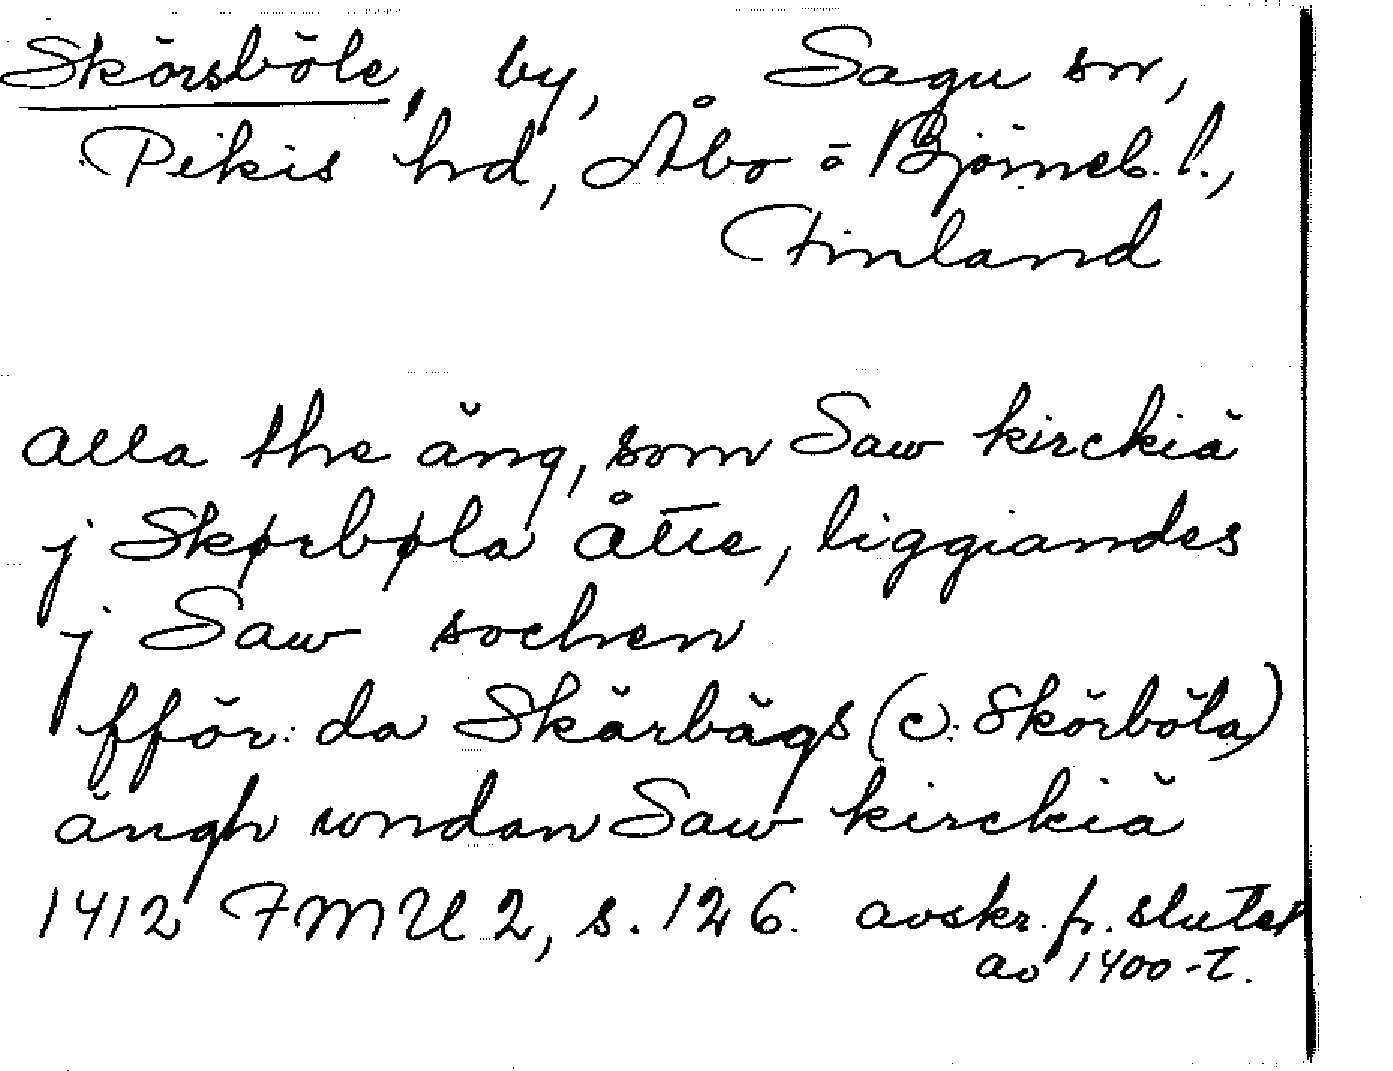 Skörsböle, by, Sagu sn,
Pikis hd, Åbo o Björneb. l.,
Finland
alla the äng, som Saw kirckiä
j Skørbøla åtte, liggiandes
j Saw sochen
fför: da Skärbägs (c: Skörböla)
ängh wndan Saw kirckiä
1412 FMU 2, s. 126. avskr. fr. slutet
av 1400-t.